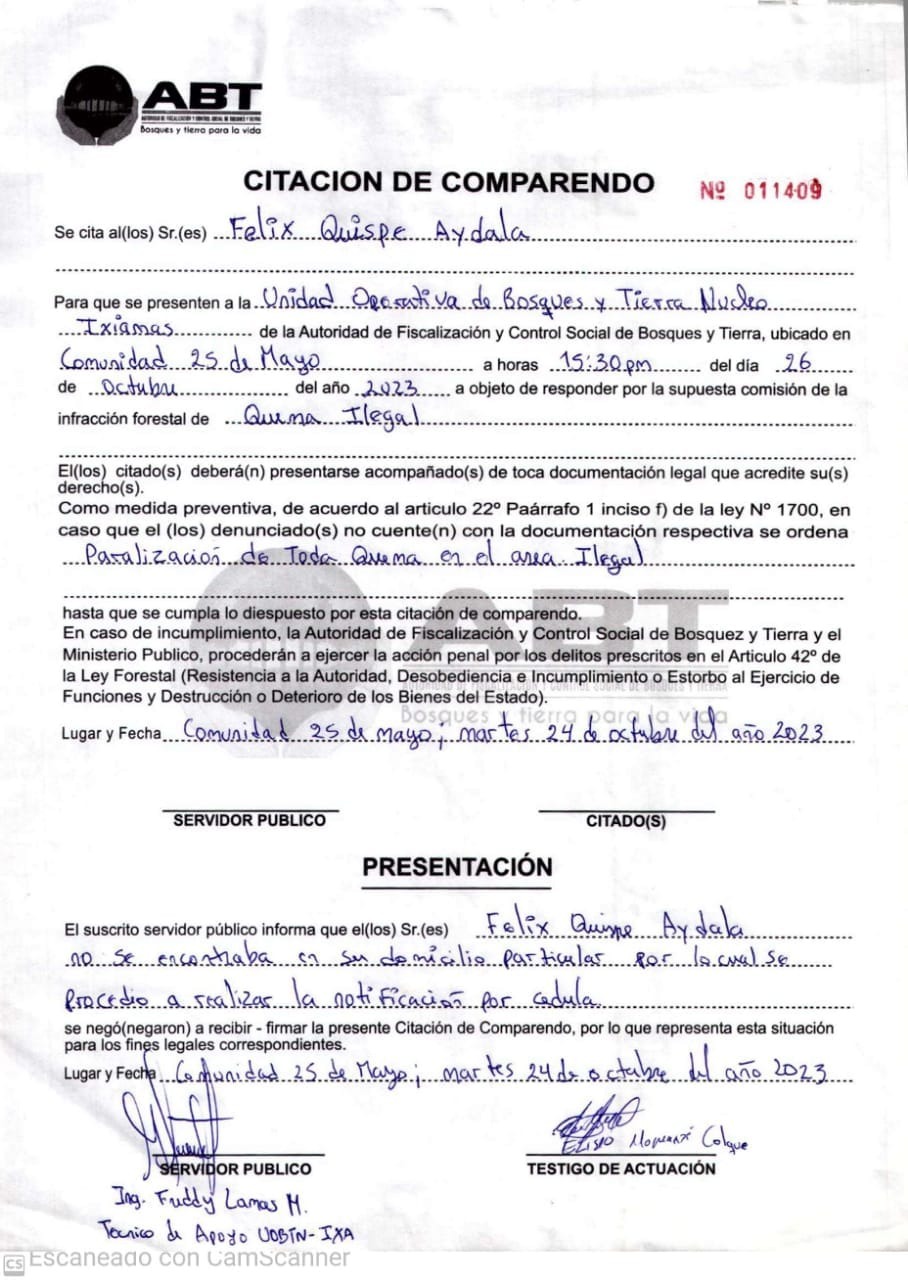 ABT
AUTORIDAD DE FISCALIZACIÓN Y CONTROL SOCIAL DE BOSQUES Y TIERRA
Bosques y tierra para la vida
CITACION DE COMPARENDO
Nº 011409
Se cita al(los) Sr.(es) Felix Quispe Aydala
Para que se presenten a la Unidad Operativa de Bosques y Tierra Nucleo
Ixiamas de la Autoridad de Fiscalización y Control Social de Bosques y Tierra, ubicado en
Comunidad 25 de Mayo a horas 15:30pm del día 26
de Octubre del año 2023 a objeto de responder por la supuesta comisión de la
infracción forestal de Quema Ilegal
El(los) citado(s) deberá(n) presentarse acompañado(s) de toca documentación legal que acredite su(s)
derecho(s).
Como medida preventiva, de acuerdo al articulo 22º Paárrafo 1 inciso f) de la ley Nº 1700, en
caso que el (los) denunciado(s) no cuente(n) con la documentación respectiva se ordena
Paralización de Toda Quema en el area Ilegal
hasta que se cumpla lo diespuesto por esta citación de comparendo.
En caso de incumplimiento, la Autoridad de Fiscalización y Control Social de Bosquez y Tierra y el
Ministerio Publico, procederán a ejercer la acción penal por los delitos prescritos en el Articulo 42º de
la Ley Forestal (Resistencia a la Autoridad, Desobediencia e Incumplimiento o Estorbo al Ejercicio de
Funciones y Destrucción o Deterioro de los Bienes del Estado).
ABT
Bosques y tierra para la vida
Lugar y Fecha Comunidad 25 de mayo; martes 24 de octubre del año 2023
SERVIDOR PUBLICO CITADO(S)
PRESENTACIÓN
El suscrito servidor público informa que el(los) Sr.(es) Felix Quispe Aydala
no se encontraba en su domicilio particular por lo cual se
procedio a realizar la notificación por cedula
se negó(negaron) a recibir - firmar la presente Citación de Comparendo, por lo que representa esta situación
para los fines legales correspondientes.
Lugar y Fecha Comunidad 25 de Mayo; martes 24 de octubre del año 2023
Colque
SERVIDOR PUBLICO TESTIGO DE ACTUACIÓN
Ing. Fuddy Lamas M.
Tecnico de Apoyo UOBTN-IXA
CS Escaneado con CamScanner